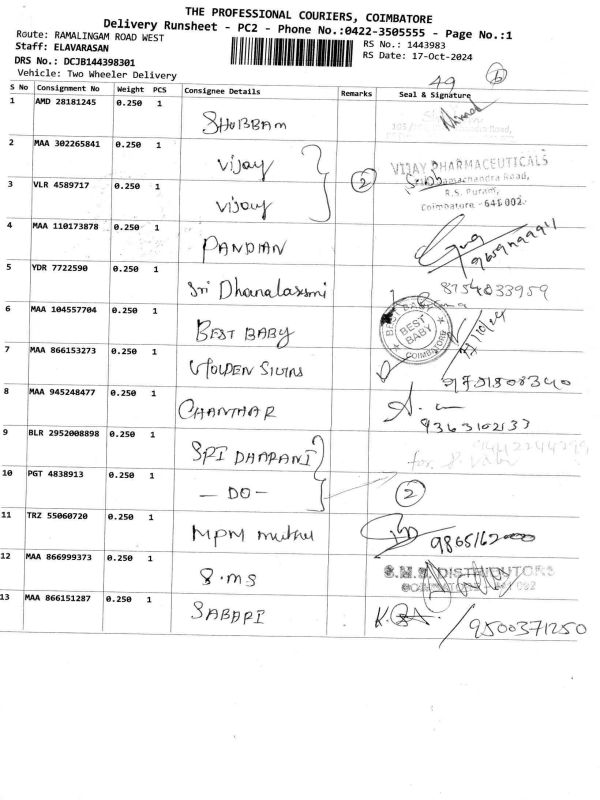 THE PROFESSIONAL COURIERS, COIMBATORE
Delivery Runsheet - PC2 - Phone No.:0422-3505555 - Page No.:1
Route: RAMALINGAM ROAD WEST
RS No.: 1443983
Staff: ELAVARASAN
RS Date: 17-Oct-2024
DRS No.: DCJB144398301
Vehicle: Two Wheeler Delivery
49
6
S No Consignment No Weight PCS Consignee Details Remarks Seal & Signature
1 AMD 28181245 0.250 1 SHUBBAM
2 MAA 302265841 0.250 1 Vijay VIJAY PHARMACEUTICALS
Ramachandra Road,
R.S. Puram,
Coimbature - 641 002.
3 VLR 4589717 0.250 1 Vijay 2
4 MAA 110173878 0.250 1 PANDIAN
5 YDR 7722590 0.250 1 Sri Dhanalaxmi 8754033959
6 MAA 104557704 0.250 1 BEST BABY BEST BABY COIMBATORE
7 MAA 866153273 0.250 1 GOLDEN 9751508340
8 MAA 945248477 0.250 1 CHANTHAR 9363102133
9 BLR 2952008898 0.250 1 SRI DHARANI for
10 PGT 4838913 0.250 1 - DO - 2
11 TRZ 55060720 0.250 1 MPM muthu 9865162000
12 MAA 866999373 0.250 1 S.MS S.M.S. DISTRIBUTORS
13 MAA 866151287 0.250 1 SABARI 9500371250